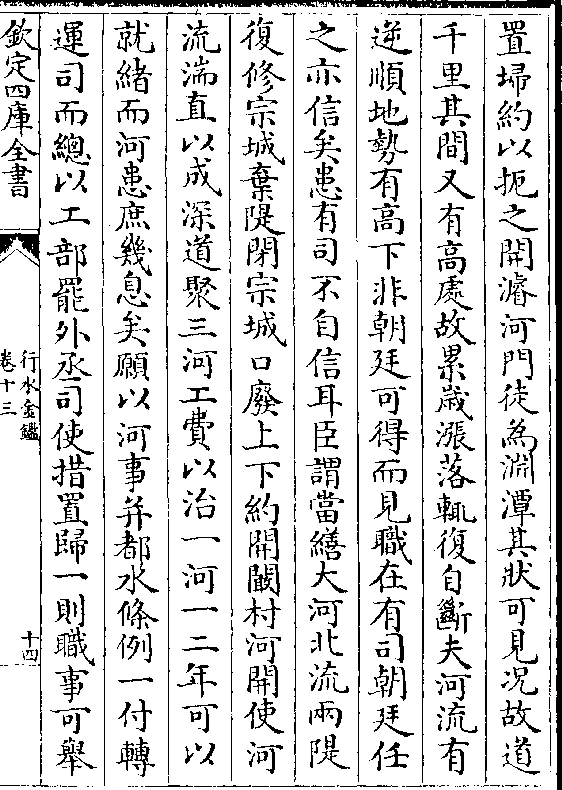 置埽約以扼之開濬河門徒為淵潭其狀可見况故道
千里其間又有高處故累歲漲落輒復自斷夫河流有
逆順地勢有高下非朝廷可得而見職在有司朝廷任
之亦信矣患有司不自信耳臣謂當繕大河北流兩隄
復修宗城棄隄閉宗城口廢上下約開闞村河開使河
流湍直以成深道聚三河工費以治一河一二年可以
就緒而河患庶幾息矣願以河事并都水條例一付轉
運司而總以工部罷外丞司使措置歸一則職事可舉
欽定四庫全書
行水金鑑
卷十三
十四